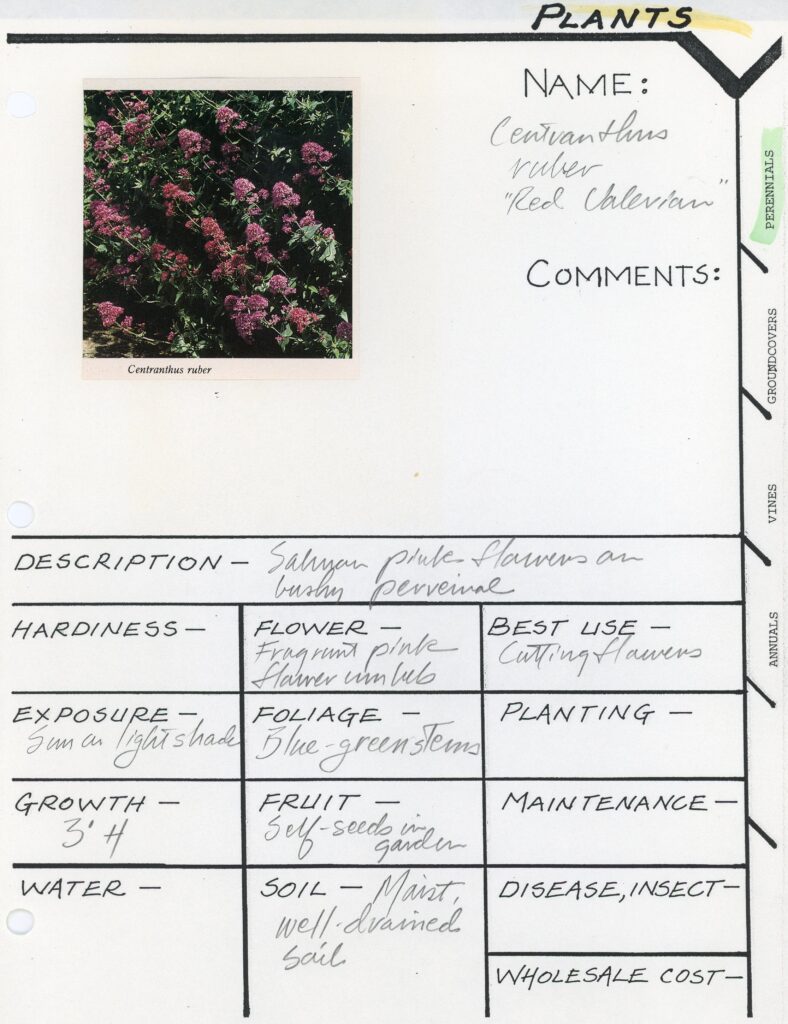 PLANTS
NAME:
Centranthus
ruber
"Red Valerian"
Centranthus ruber
COMMENTS:
PERENNIALS
GROUNDCOVERS
VINES
ANNUALS
DESCRIPTION — Salmon pink flowers on
bushy perreinal
HARDINESS —
FLOWER —
Fragrant pink
flower umbels
BEST USE —
Cutting flowers
EXPOSURE —
Sun or light shade
FOLIAGE —
Blue-green stems
PLANTING —
GROWTH —
3' H
FRUIT —
Self-seeds in
garden
MAINTENANCE —
WATER —
SOIL — Moist,
well-drained
soil
DISEASE, INSECT —
WHOLESALE COST —